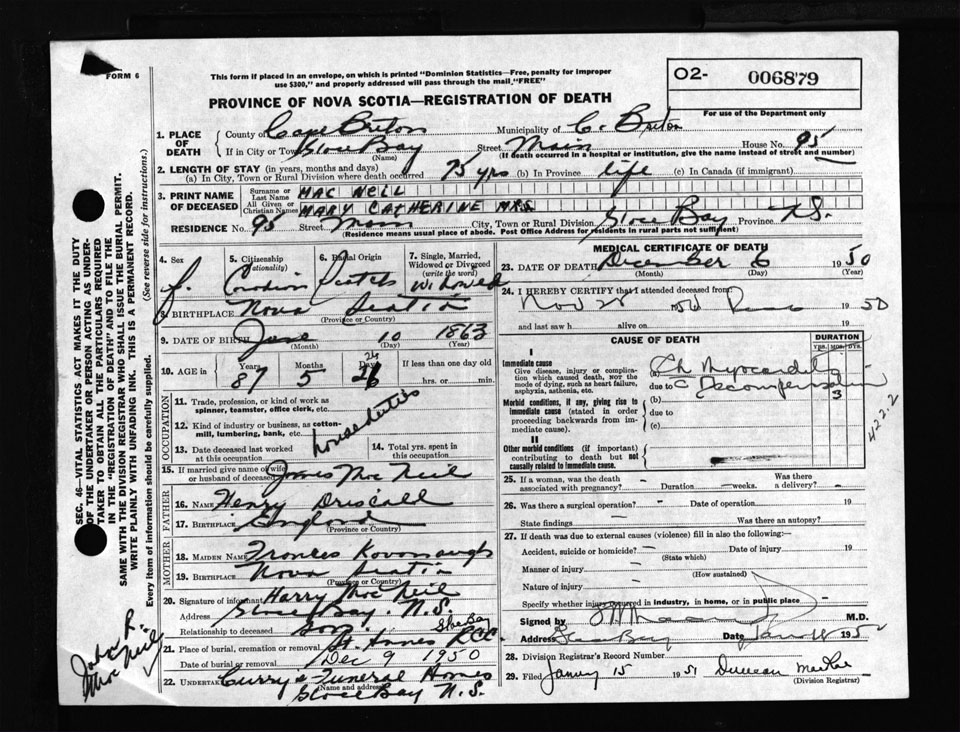 FORM 6
This form if placed in an envelope, on which is printed "Dominion Statistics—Free, penalty for improper
use $300," and properly addressed will pass through the mail "FREE"
O2- 006879
For use of the Department only
PROVINCE OF NOVA SCOTIA—REGISTRATION OF DEATH
1. PLACE OF DEATH County of Cape Breton Municipality of C. Breton
If in City or Town Glace Bay (Name) Street Main House No. 95
(If death occurred in a hospital or institution, give the name instead of street and number)
2. LENGTH OF STAY (in years, months and days)
(a) In City, Town or Rural Division where death occurred 75 yrs (b) In Province life (c) In Canada (if immigrant)
3. PRINT NAME OF DECEASED Surname or Last Name MAC NEIL
All Given or Christian Names MARY CATHERINE MRS
RESIDENCE No. 95 Street Main City, Town or Rural Division Glace Bay Province N.S.
(Residence means usual place of abode. Post Office Address for residents in rural parts not sufficient)
4. Sex f.
5. Citizenship (Nationality) Canadian
6. Racial Origin Scotch
7. Single, Married, Widowed or Divorced (write the word) Widowed
8. BIRTHPLACE Nova Scotia
(Province or Country)
9. DATE OF BIRTH June (Month) 10 (Day) 1863 (Year)
10. AGE in Years 87 Months 5 Days 26 If less than one day old
hrs. or min.
OCCUPATION
11. Trade, profession, or kind of work as
spinner, teamster, office clerk, etc.
12. Kind of industry or business, as cotton-
mill, lumbering, bank, etc.
house duties
13. Date deceased last worked
at this occupation
14. Total yrs. spent in
this occupation
15. If married give name of wife
or husband of deceased James Mac Neil
FATHER
16. Name Henry Driscall
17. Birthplace England
(Province or Country)
MOTHER
18. Maiden Name Frances Kavanaugh
19. Birthplace Nova Scotia
(Province or Country)
20. Signature of informant Harry Mac Neil
Address Glace Bay. N.S.
Relationship to deceased son
21. Place of burial, cremation or removal St. Annes RCC. Glace Bay
Date of burial or removal Dec 9 1950
22. Undertaker Curry's Funeral Home
(Name and address)
Glace Bay N.S.
MEDICAL CERTIFICATE OF DEATH
23. DATE OF DEATH December (Month) 6 (Day) 1950 (Year)
24. I HEREBY CERTIFY that I attended deceased from
Nov 1950
and last saw h alive on 19
CAUSE OF DEATH
DURATION
YRS. MOS. DYS.
I
Immediate cause
Give disease, injury or complica-
tion which caused death, not the
mode of dying, such as heart failure,
asphyxia, asthenia, etc.
(a) Ch Myocarditis
due to c Decompensation
Morbid conditions, if any, giving rise to
immediate cause (stated in order
proceeding backwards from im-
mediate cause).
(b)
3
due to
(c)
422.2
II
Other morbid conditions (if important)
contributing to death but not
causally related to immediate cause.
25. If a woman, was the death
associated with pregnancy? - Duration -weeks. Was there
a delivery? -
26. Was there a surgical operation? - Date of operation 19
State findings Was there an autopsy?
27. If death was due to external causes (violence) fill in also the following:
Accident, suicide or homicide? Date of injury 19
(State which)
Manner of injury
(How sustained)
Nature of injury
Specify whether injury occurred in industry, in home, or in public place
Signed by M.D.
Address Glace Bay Date
28. Division Registrar's Record Number
29. Filed January 15 1951 Duncan MacRae
(Division Registrar)
SEC. 46—VITAL STATISTICS ACT MAKES IT THE DUTY
OF THE UNDERTAKER OR PERSON ACTING AS UNDER-
TAKER TO OBTAIN ALL THE PARTICULARS REQUIRED
IN THE "REGISTRATION OF DEATH" AND TO FILE THE
SAME WITH THE DIVISION REGISTRAR WHO SHALL ISSUE THE BURIAL PERMIT.
WRITE PLAINLY WITH UNFADING INK. THIS IS A PERMANENT RECORD.
Every item of information should be carefully supplied. (See reverse side for instructions.)
John R.
Mac Neil